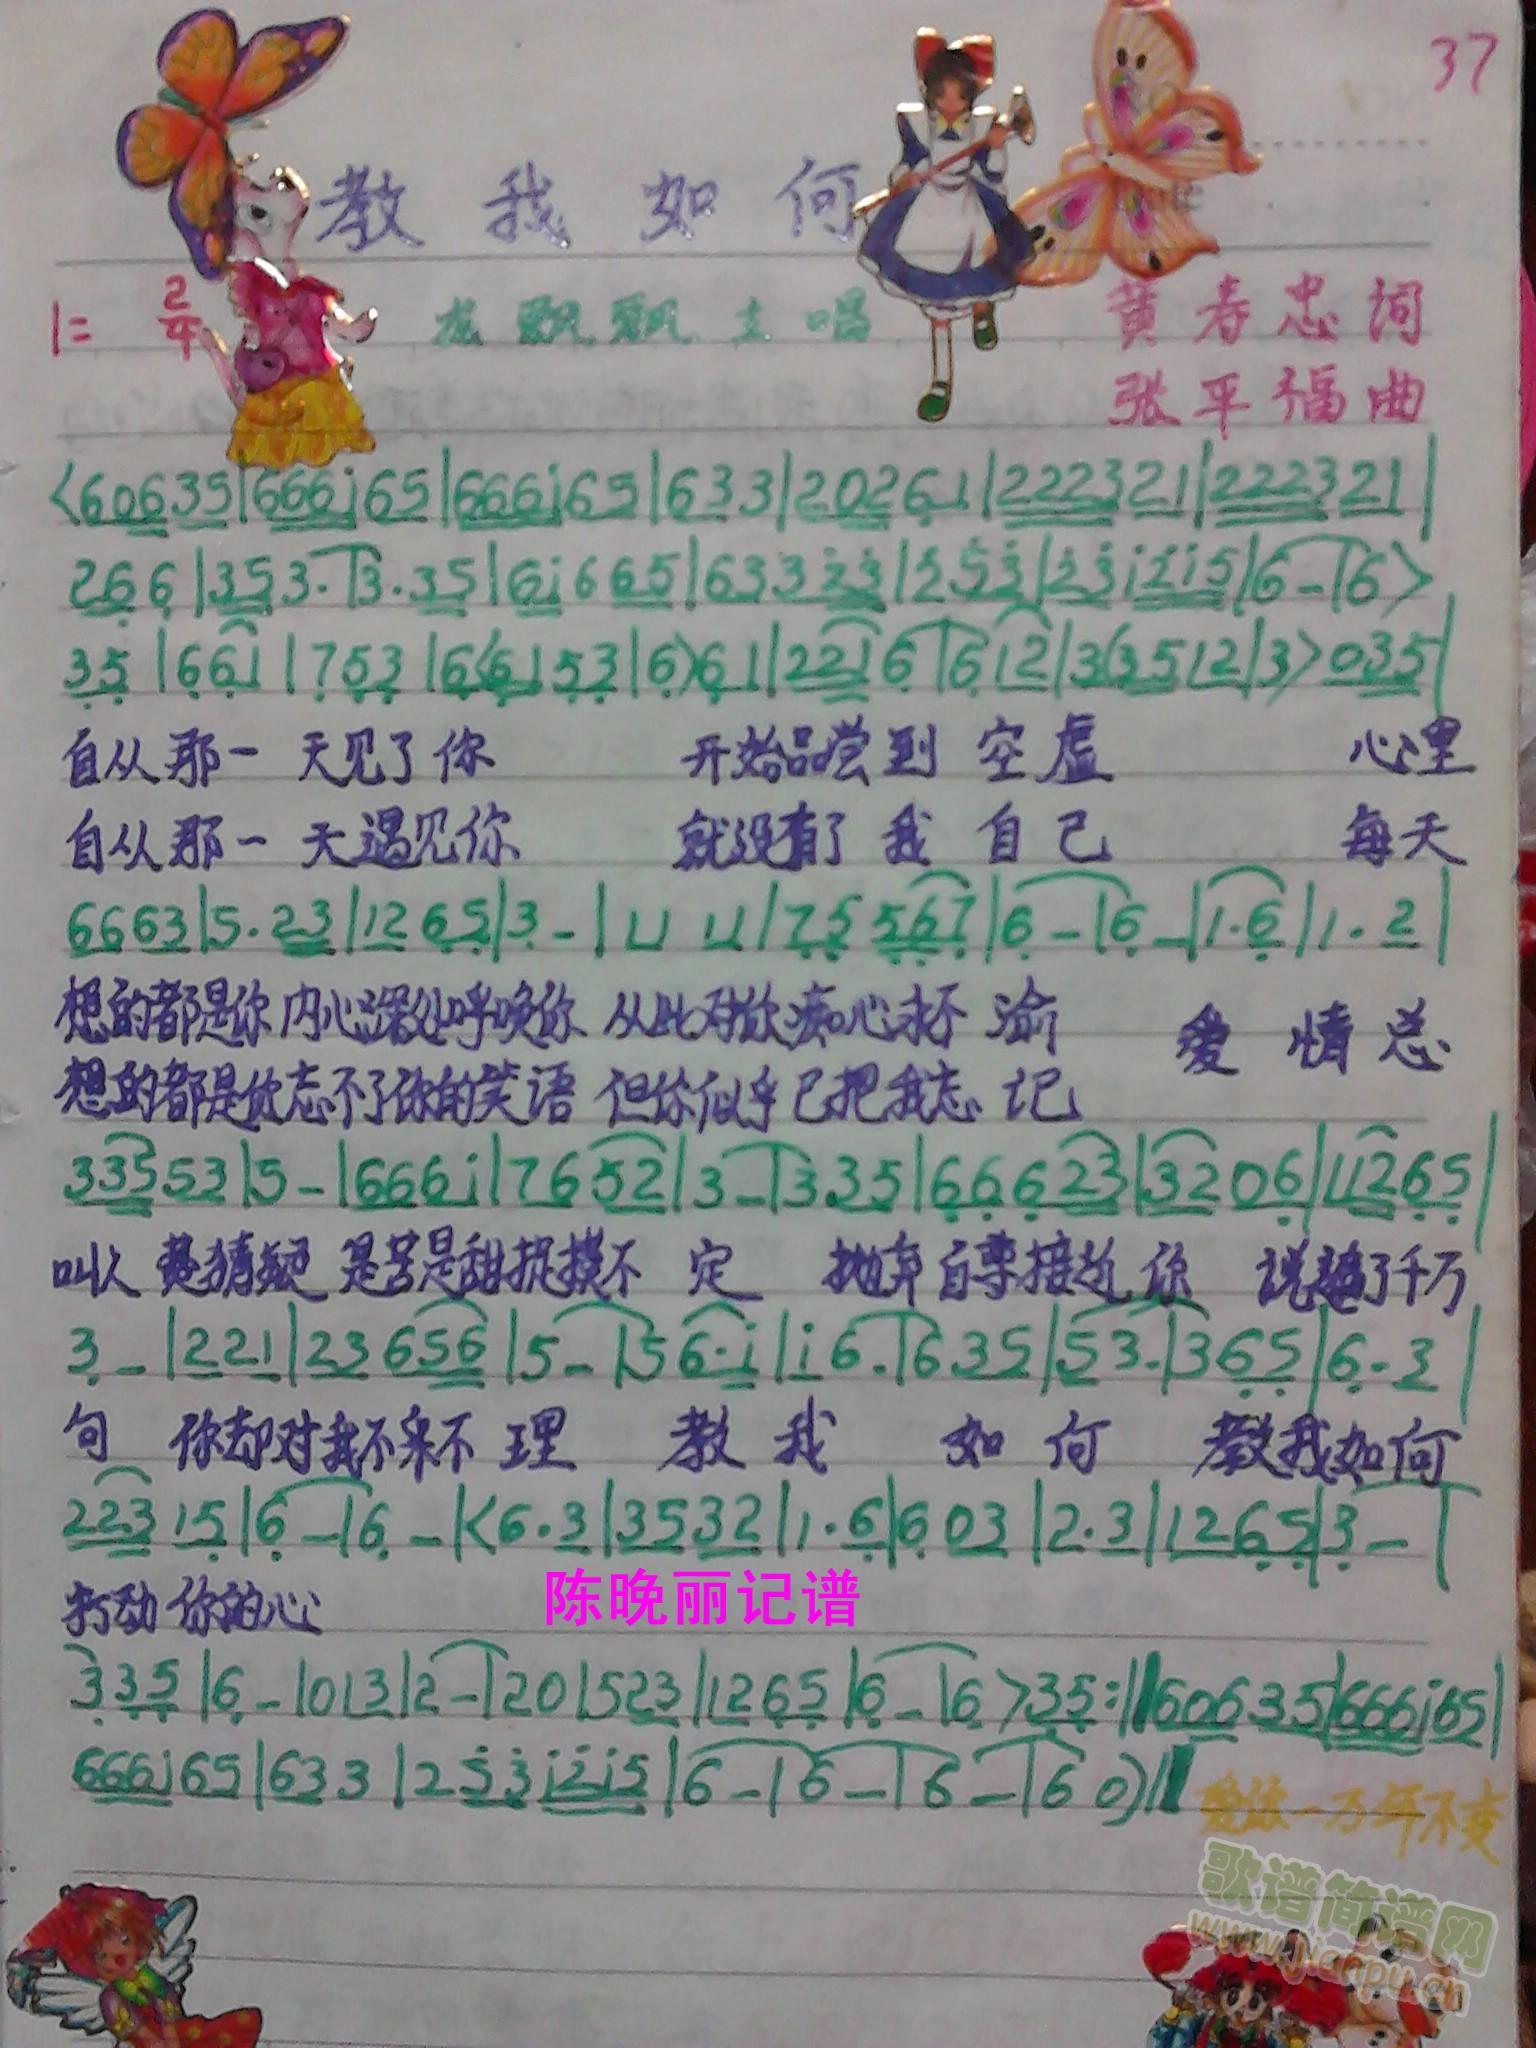 37
教我如何
1= 2/4 龙飘飘主唱 黄春忠词
张平福曲
<60635|666i65|666i65|633|20261|222321|222321|
266|353.|3.35|6i665|63323|253|23i2i5|6-|6>
35|661|753|6<6153|6>61|2216|612|3<3512|3>035|
自从那一天见了你 开始品尝到空虚 心里
自从那一天遇见你 就没有了我自己 每天
6663|5.23|1265|3-|11 11|75567|6-|6-|1.6|1.2|
想的都是你内心深处呼唤你 从此对你痴心永不渝 爱情总
想的都是你忘不了你的笑语 但你似乎已把我忘记
33553|5-|666i|7652|3-|335|66623|3206|11265|
叫人费猜疑 是苦是甜捉摸不定 抛弃自尊接近你 说过了千万
3-|221|23656|5-|56.i|i6.|635|53.|365|6.3|
句 你却对我不采不理 教我如何 教我如何
22315|6-|6-|<6.3|3532|1.6|603|2.3|1265|3-|
打动你的心
陈晚丽记谱
335|6-|013|2-|20|523|1265|6-|6>35:||60635|666i65|
666i65|633|253i2i5|6-|6-|6-|60)||
爱你一万年不变
歌谱简谱网
www.jianpu.cn